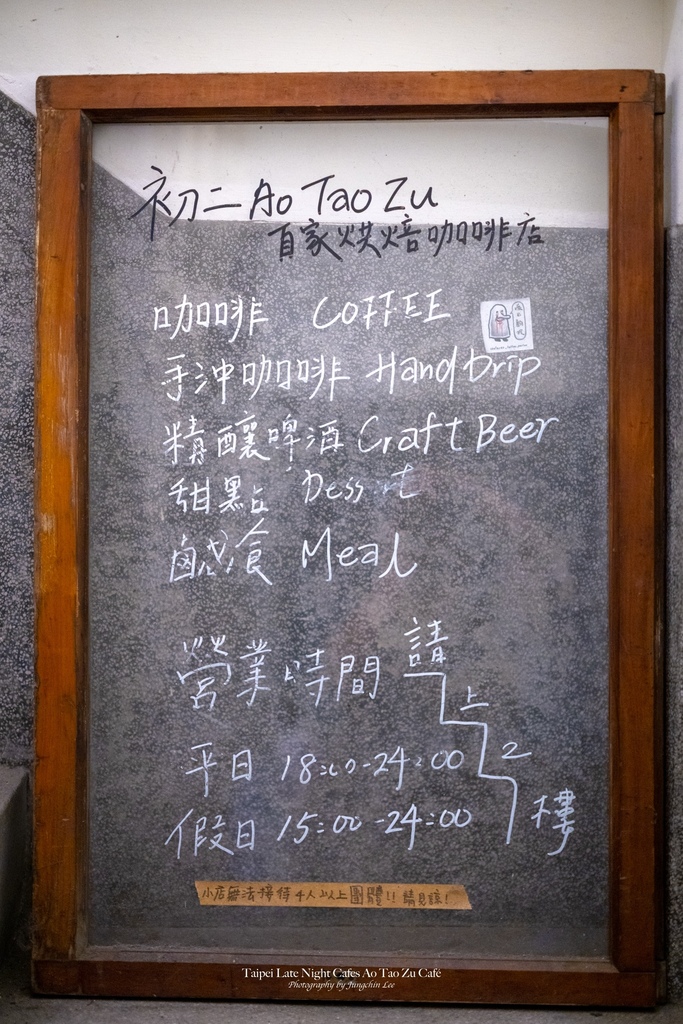 初二 Ao Tao Zu
自家烘焙咖啡店
咖啡 COFFEE
手沖咖啡 Hand Drip
精釀啤酒 Craft Beer
甜點 Dess rt
鹹食 Meal
營業時間
請上2樓
平日 18:00-24:00
假日 15:00-24:00
小店無法接待4人以上團體!! 請見諒!
Taipei Late Night Cafes Ao Tao Zu Café
Photography by Jungchin Lee